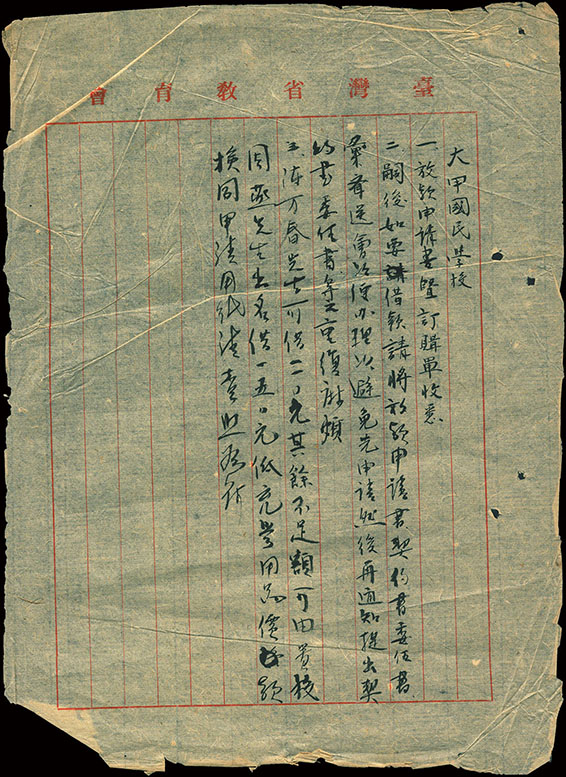 臺灣省教育會
大甲國民學校
一、放款申請書暨訂購單收悉
二、嗣後如要借款請將放款申請書契約書委任書
彙齊送會以便办理以避免先申請然後再通知提出契
約書委任書等之重復麻煩
三、陳万春先生可借二〇〇元其餘不足額可由貴校
周燕先生出名借一五〇元低充學用品價款
換同甲請用紙請查照為荷